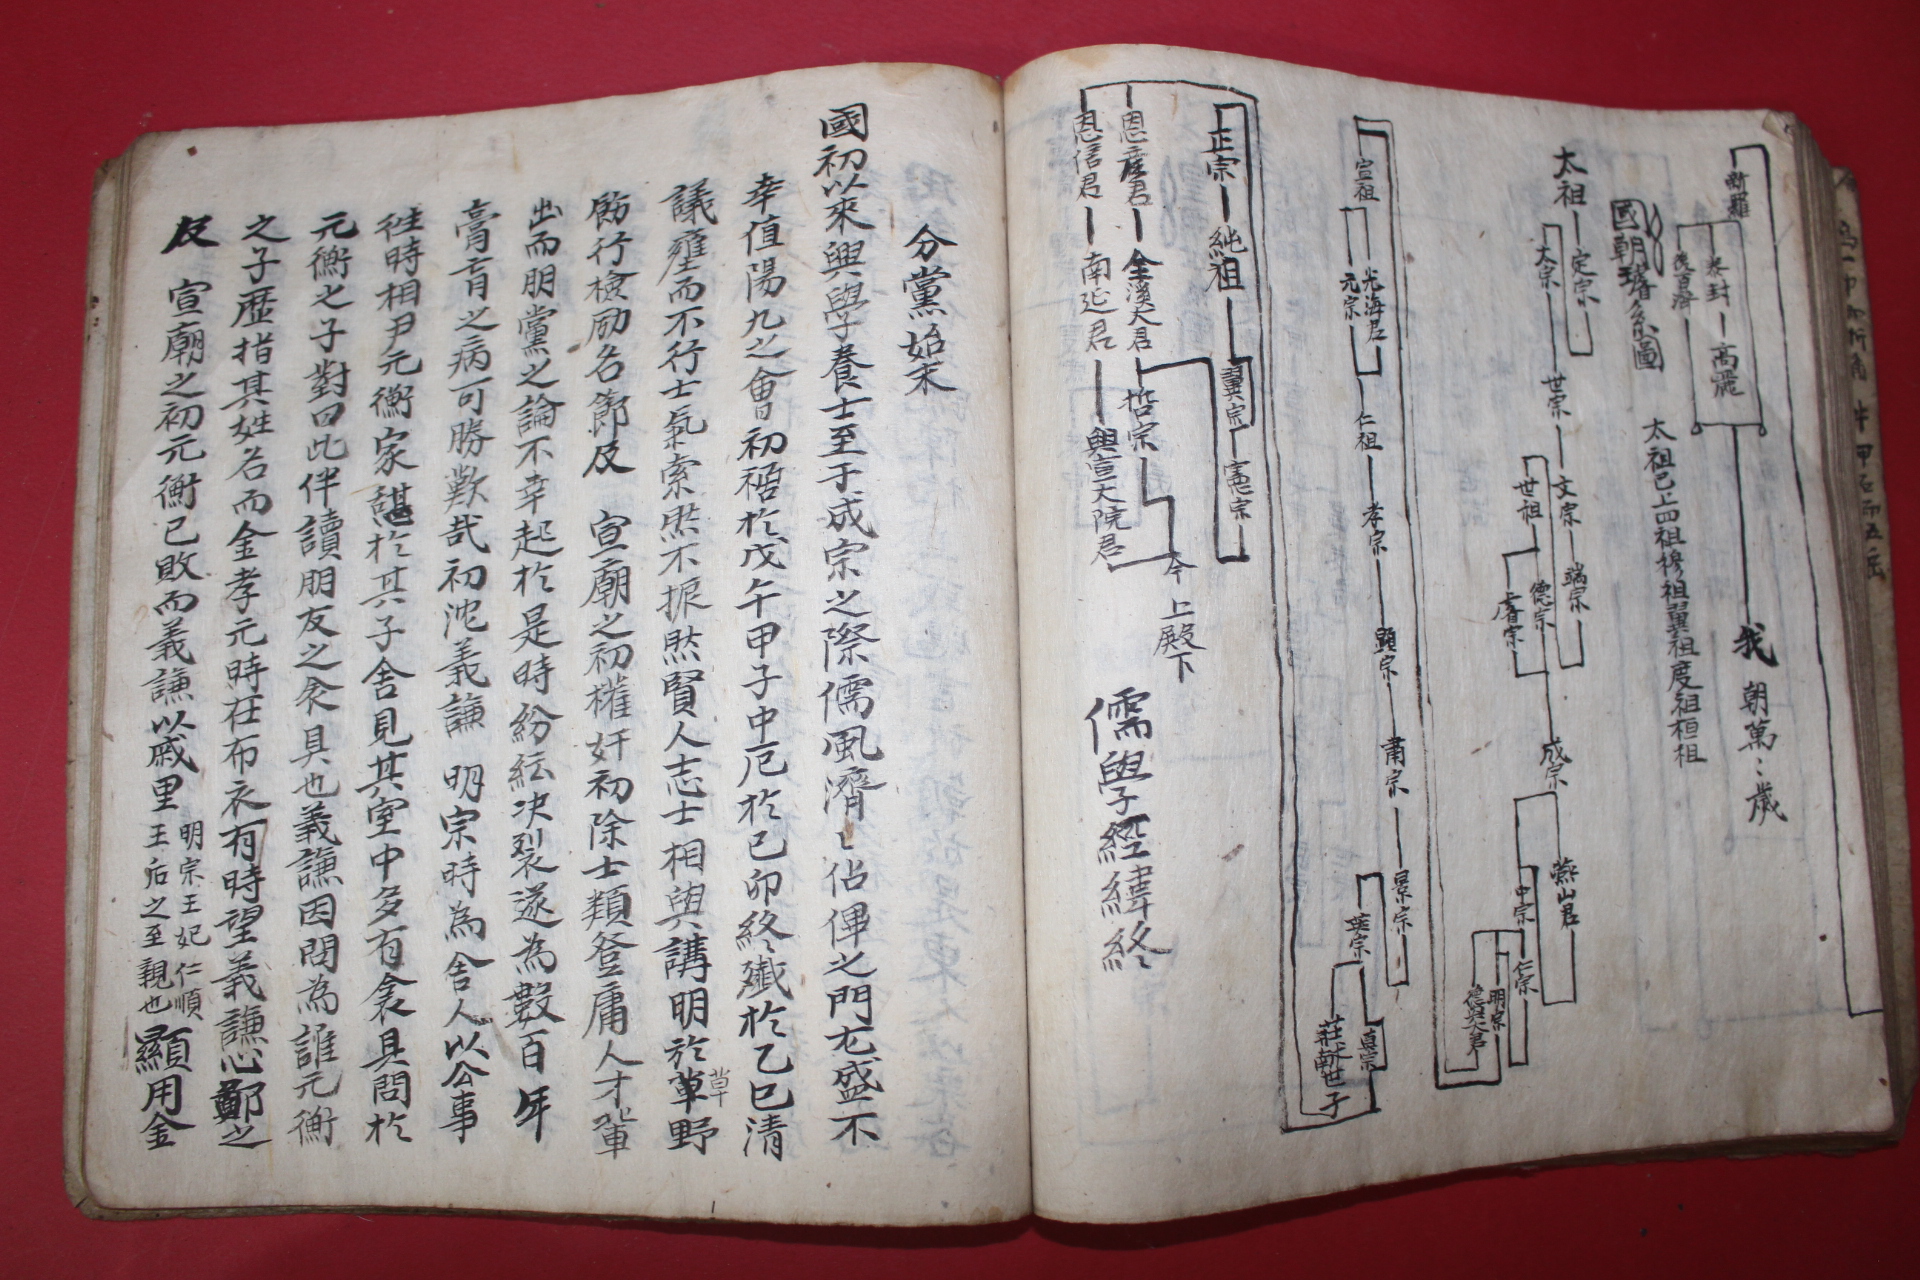 新羅
泰封 高麗
後百濟
我 朝萬〻歲
國朝璿系圖
太祖已上四祖穆祖翼祖度祖桓祖
太祖
定宗
太宗 世宗 文宗 端宗
世祖 德宗 成宗 燕山君
睿宗
中宗 仁宗
明宗
德興大君
宣祖
光海君
元宗 仁祖 孝宗 顯宗 肅宗 景宗
英宗 真宗
莊獻世子
正宗 純祖 翼宗 憲宗
恩彥君 全溪大君 哲宗
恩信君 南延君 興宣大院君
今 上殿下
儒學經緯終
分黨始末
國初以來興學養士至于成宗之際儒風濟〻佔俾之門尤盛不
幸值陽九之會初禍於戊午甲子中厄於己卯終殲於乙巳清
議壅而不行士氣索然不振然賢人志士相與講明於草野
草
飭行檢勵名節及 宣廟之初權奸初除士類登庸人才輩
出而朋黨之論不幸起於是時紛紜決裂遂為數百年
膏肓之病可勝歎哉初沈義謙 明宗時為舍人以公事
徃時相尹元衡家諶於其子舍見其室中多有衾具問於
元衡之子對曰此伴讀朋友之衾具也義謙因問為誰元衡
之子歷指其姓名而金孝元時在布衣有時望義謙心鄭之
及 宣廟之初元衡已敗而義謙以戚里
明宗王妃仁順
王后之至親也
顯用金